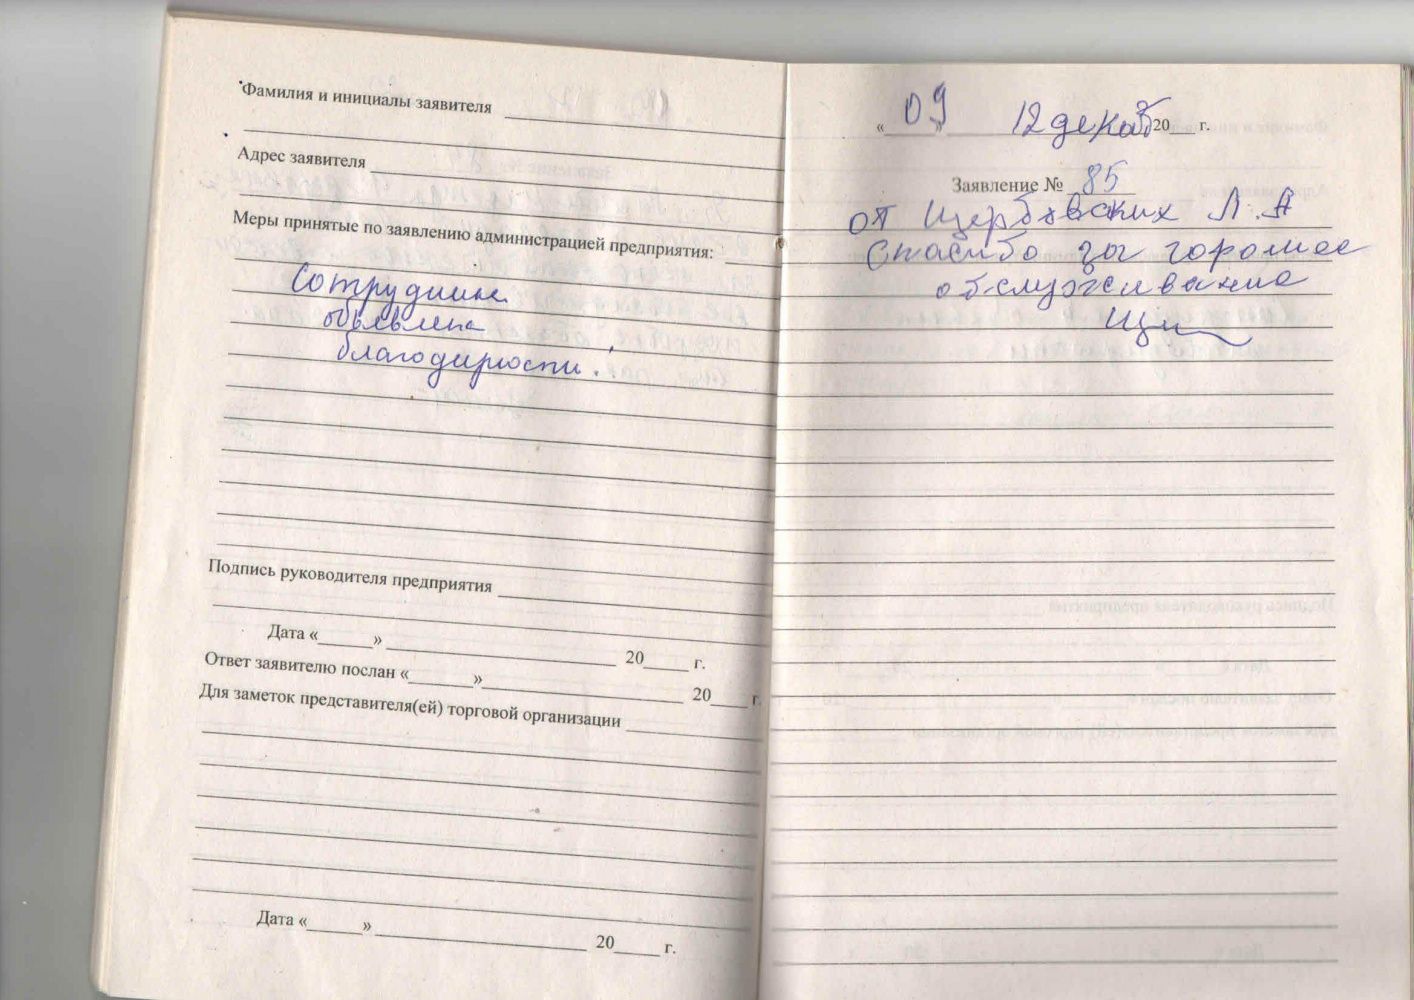 Фамилия и инициалы заявителя
Адрес заявителя
Меры принятые по заявлению администрацией предприятия:
Сотруднике
объявлена
благодарности.
Подпись руководителя предприятия
Дата «______» ______ 20____ г.
Ответ заявителю послан «______» ______ 20____ г.
Для заметок представителя(ей) торговой организации
Дата «______» ______ 20____ г.
« 09 » 12 декаб 20___ г.
Заявление № 85
от Щербовских Л.А
Спасибо за хорошое
обслуживание